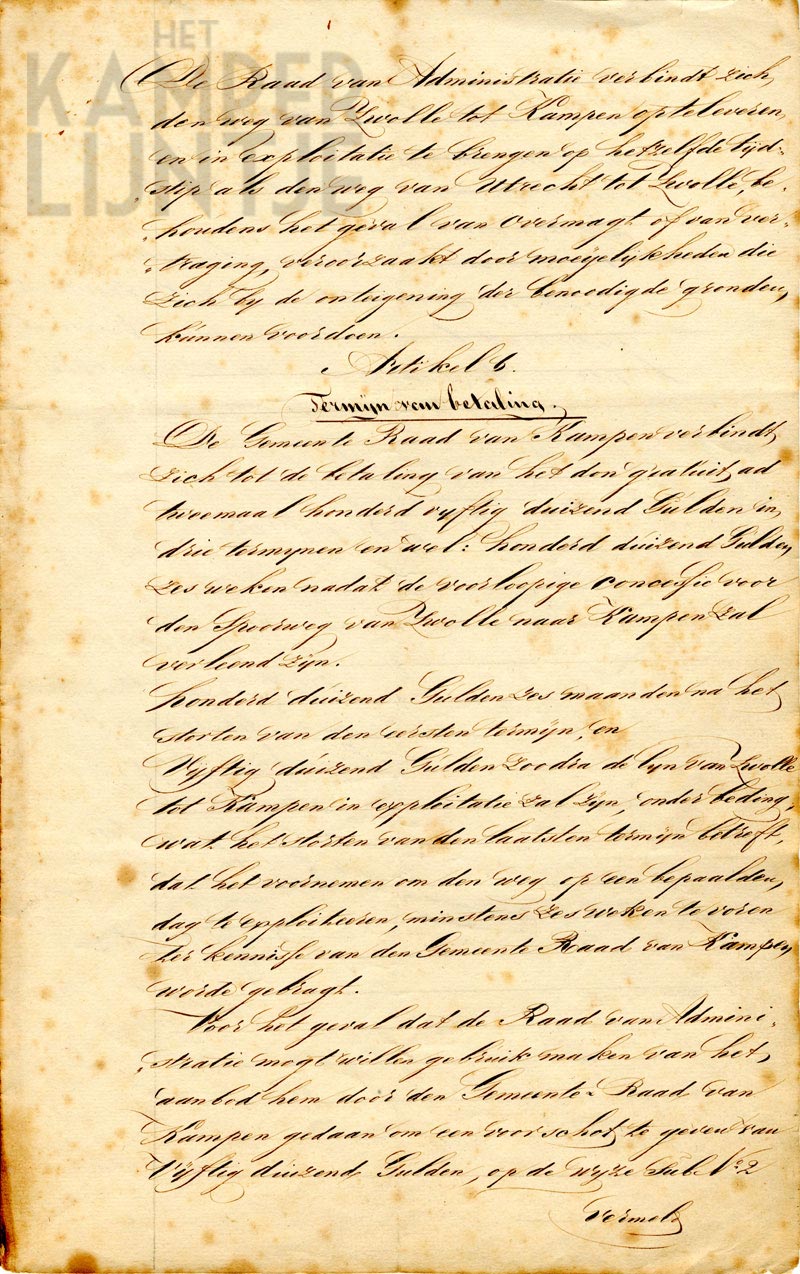 HET
KAMPER
LIJNTJE
De Raad van Administratie verbindt zich,
den weg van Zwolle tot Kampen opteleveren,
en in exploitatie te brengen op hetzelfde tijd-
stip als den weg van Utrecht tot Zwolle, be-
houdens het geval van overmagt of van ver-
traging, veroorzaakt door moeijelykheden die
zich bij de onteigening der benoodigde gronden,
kunnen voordoen.
Artikel 6.
Termijn van betaling.
De Gemeente Raad van Kampen verbindt
zich tot de betaling van het don gratuit ad
tweemaal honderd vyftig duizend Gulden in
drie termynen en wel: honderd duizend Gulden,
zes weken nadat de voorloopige concessie voor
den Spoorweg van Zwolle naar Kampen zal
verleend zyn.
honderd duizend Gulden zes maanden na het
storten van den eersten termyn, en
Vyftig duizend Gulden zoodra de lyn van Zwolle
tot Kampen in exploitatie zal zyn, onder beding,
wat het storten van den laatsten termyn betreft,
dat het voornemen om den weg op een bepaalden,
dag te exploiteeren, minstens zes weken te voren
ter kennisse van den Gemeente Raad van Kampen
worde gebragt.
Voor het geval dat de Raad van Admini-
stratie mogt willen gebruik maken van het,
aanbod hem door den Gemeente Raad van
Kampen gedaan om een voorschot te geven van
Vyftig duizend Gulden, op de wyze sub No 2
vermeld